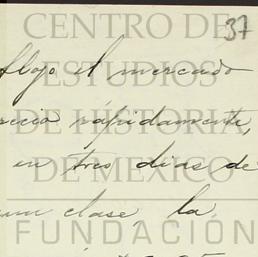 37
CENTRO DE
flojo el mercado
ESTUDIOS
rápidamente,
DE HISTORIA
en tres dias de
DE MEXICO
clase, la
FUNDACIÓN